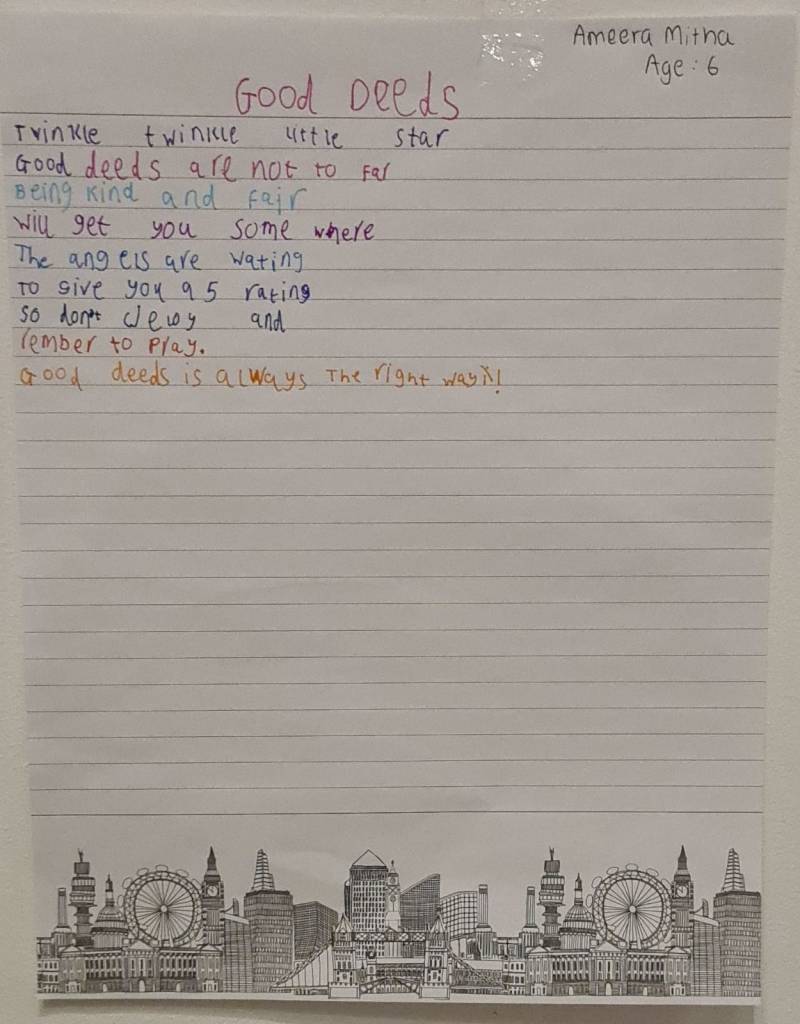 Ameera Mitha
Age: 6
Good Deeds
Twinkle twinkle little star
Good deeds are not to far
Being kind and fair
will get you some where
The angels are wating
To give you a 5 rating
So don't dewy and
rember to Play.
Good deeds is always The right way!!